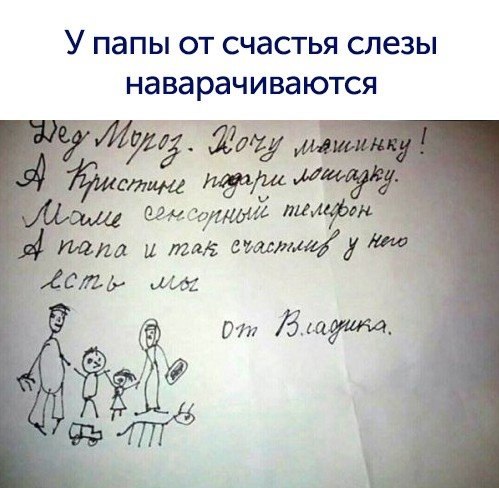 У папы от счастья слезы
наварачиваются
Дед Мороз. Хочу машинку!
А Кристине подари лошадку.
Маме сенсорный телефон
А папа и так счастлив у него
есть мы
от Владика.